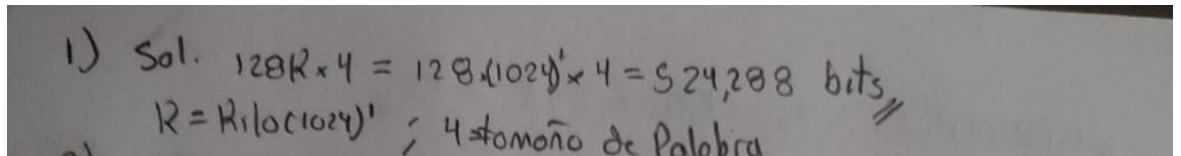 1) Sol. 128K × 4 = 128.(1024)¹ × 4 = 524,288 bits,,
K = Kilo(1024)¹ ; 4 = tamaño de Palabra